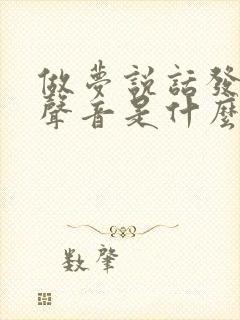 做夢説話發
聲音是什麼
數肇